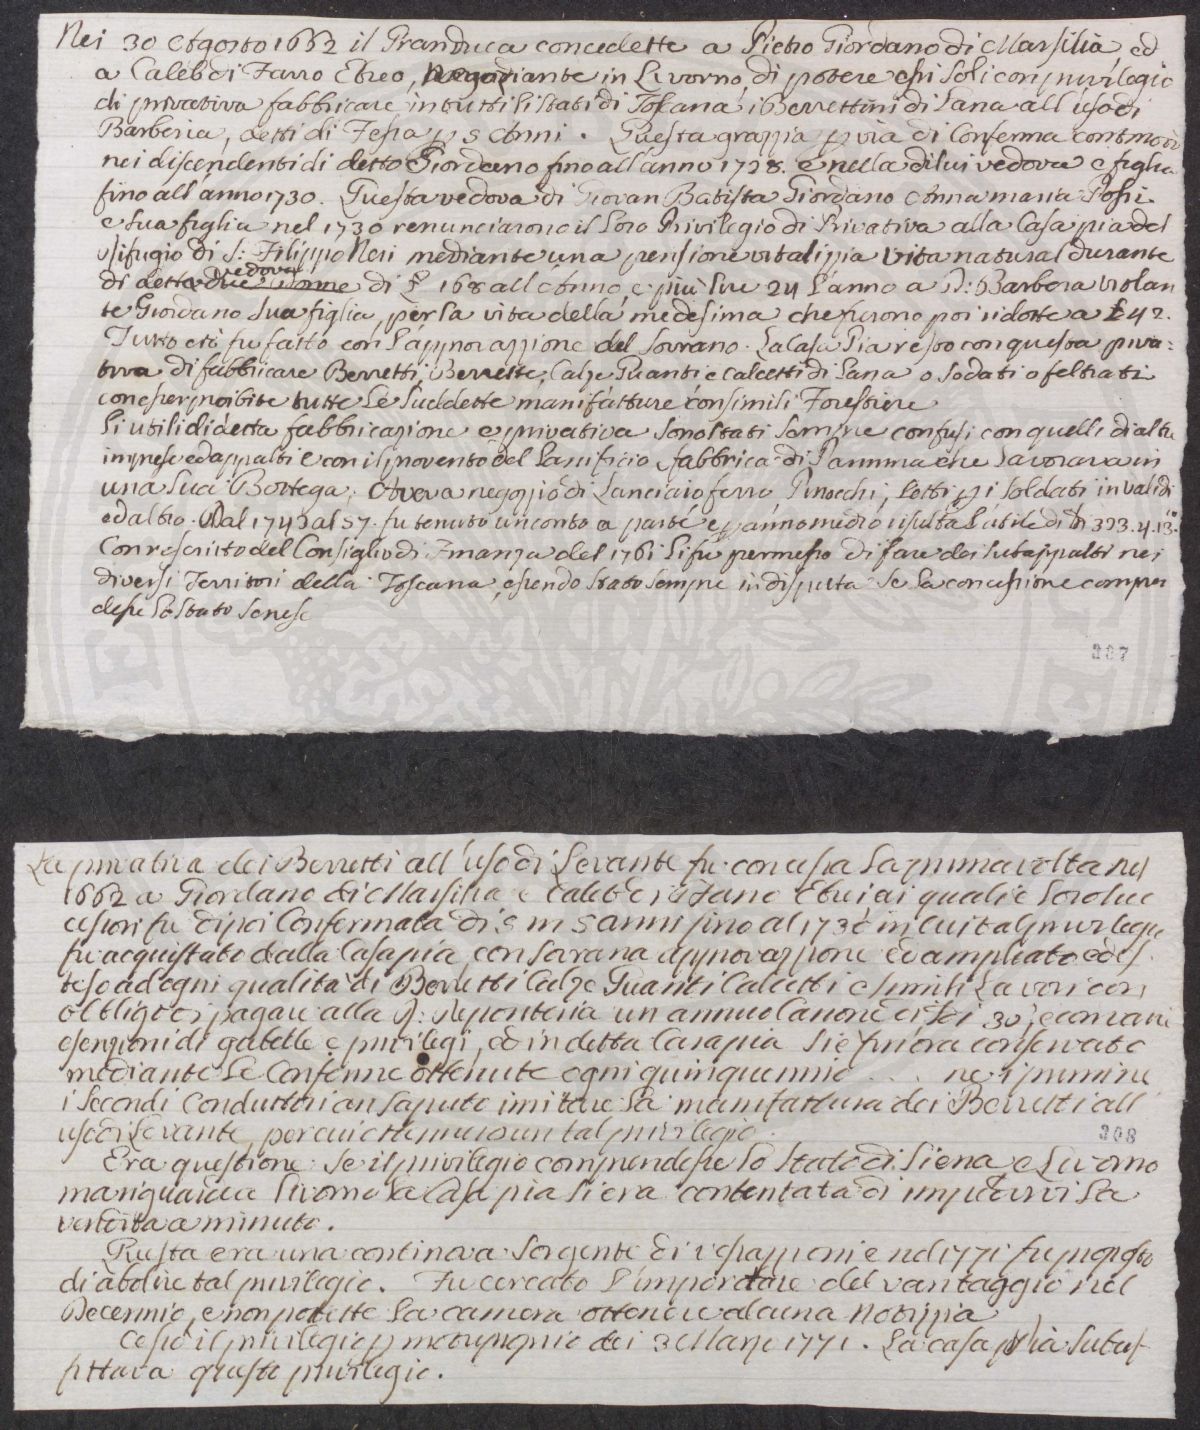 Nei 30 Agosto 1662 il Granduca concedette a Pietro Giordano di Marsilia ed
a Caleb di Farro Ebreo, Negoziante in Livorno, di potere essi soli con privilegio
di privativa fabbricare in tutti li Stati di Toscana i Berrettini di Lana all'uso di
Barberia, detti di Fessa p 5 Anni. Questa grazzia p via di Conferma continovò
nei discendenti di detto Giordano fino all'anno 1728. e nella di lui vedova e figlia
fino all'anno 1730. Questa vedova di Giovan Batista Giordano Anna maria
e sua figlia nel 1730 renunciarono il Loro Privilegio di Privativa alla Casa pia del
rifugio di S: Filippo Neri mediante una pensione vitalizzia vita natural durante
di detta vedova di £ 168 all'Anno, e più lire 24 L'anno a D: Barbera Violan
te Giordano sua figlia, per la vita della medesima che furono poi ridotte a £ 42.
Tutto ciò fu fatto con L'approvazzione del Sovrano. La Casa Pia restò con questa priva=
tiva di fabbricare Berretti, Berrette, Calze Guanti e Calcetti di Lana o Sodati o feltrati
con esser proibite tutte Le suddette manifatture consimili Forestiere
Li utili di detta fabbricazione e privativa sono stati sempre confusi con quelli di altre
imprese ed appalti e con il provento del Lanificio fabbrica di Pannina che Lavorava in
una sua Bottega; Aveva negozzio di Lanciaio ferro Pinocchi, Letti p i soldati invalidi
ed altro. Dal 1743 al 57. fu tenuto un conto a parte e p anno medio risulta L'utile di 323.4.13.
Con rescritto del Consiglio di Finanza del 1761 Li fu permesso di fare dei Subappalti nei
diversi Territori della Toscana, essendo stato sempre in disputa se la concessione compren
desse Lo Stato Senese
307
La privativa dei Berretti all'uso di Levante fu concessa La prima volta nel
1662 a Giordano di Marsilia e Caleb di Farro Ebrei ai quali e Loro suc
cessori fu dipoi Confermata di 5 in 5 anni fino al 1730 in cui tal privilegio
fu acquistato dalla Casa pia con Sovrana approvazzione ed ampliato ed es
teso ad ogni qualità di Berretti Calze Guanti Calcetti e simili Lavori con
obbligo di pagare alla R: Depositeria un annuo Canone di sei 30, e con varie
esenzioni di gabelle e privilegi, ed in detta Casa pia si è finora conservato
mediante Le Conferme ottenute ogni quinquennio .... ne i primi ne
i secondi Conduttori an saputo imitare La manifattura dei Berretti all'
uso di Levante, per cui ottennero un tal privilegio.
308
Era questione se il privilegio comprendesse Lo Stato di Siena e Livorno
ma riguardo a Livorno La Casa pia si era contentata di impedirvi La
vendita a minuto.
Questa era una continova Sorgente di vessazzioni e nel 1771 fu proposto
di abolire tal privilegio. Fu cercato L'importare del vantaggio nel
Decennio, e non potette La camera ottenere alcuna Notizzia
Cessò il privilegio p motuproprio dei 3 Marzo 1771. La casa Pia Subaf
fittava questo privilegio.